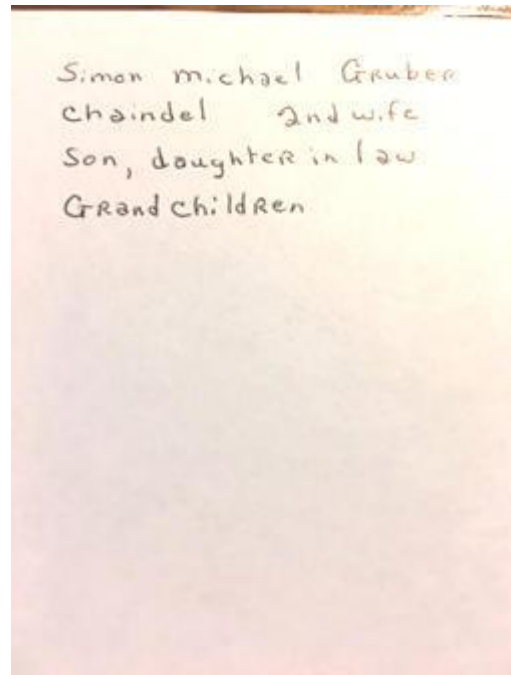 Simon michael Gruber
chaindel 2nd wife
Son, daughter in law
Grandchildren